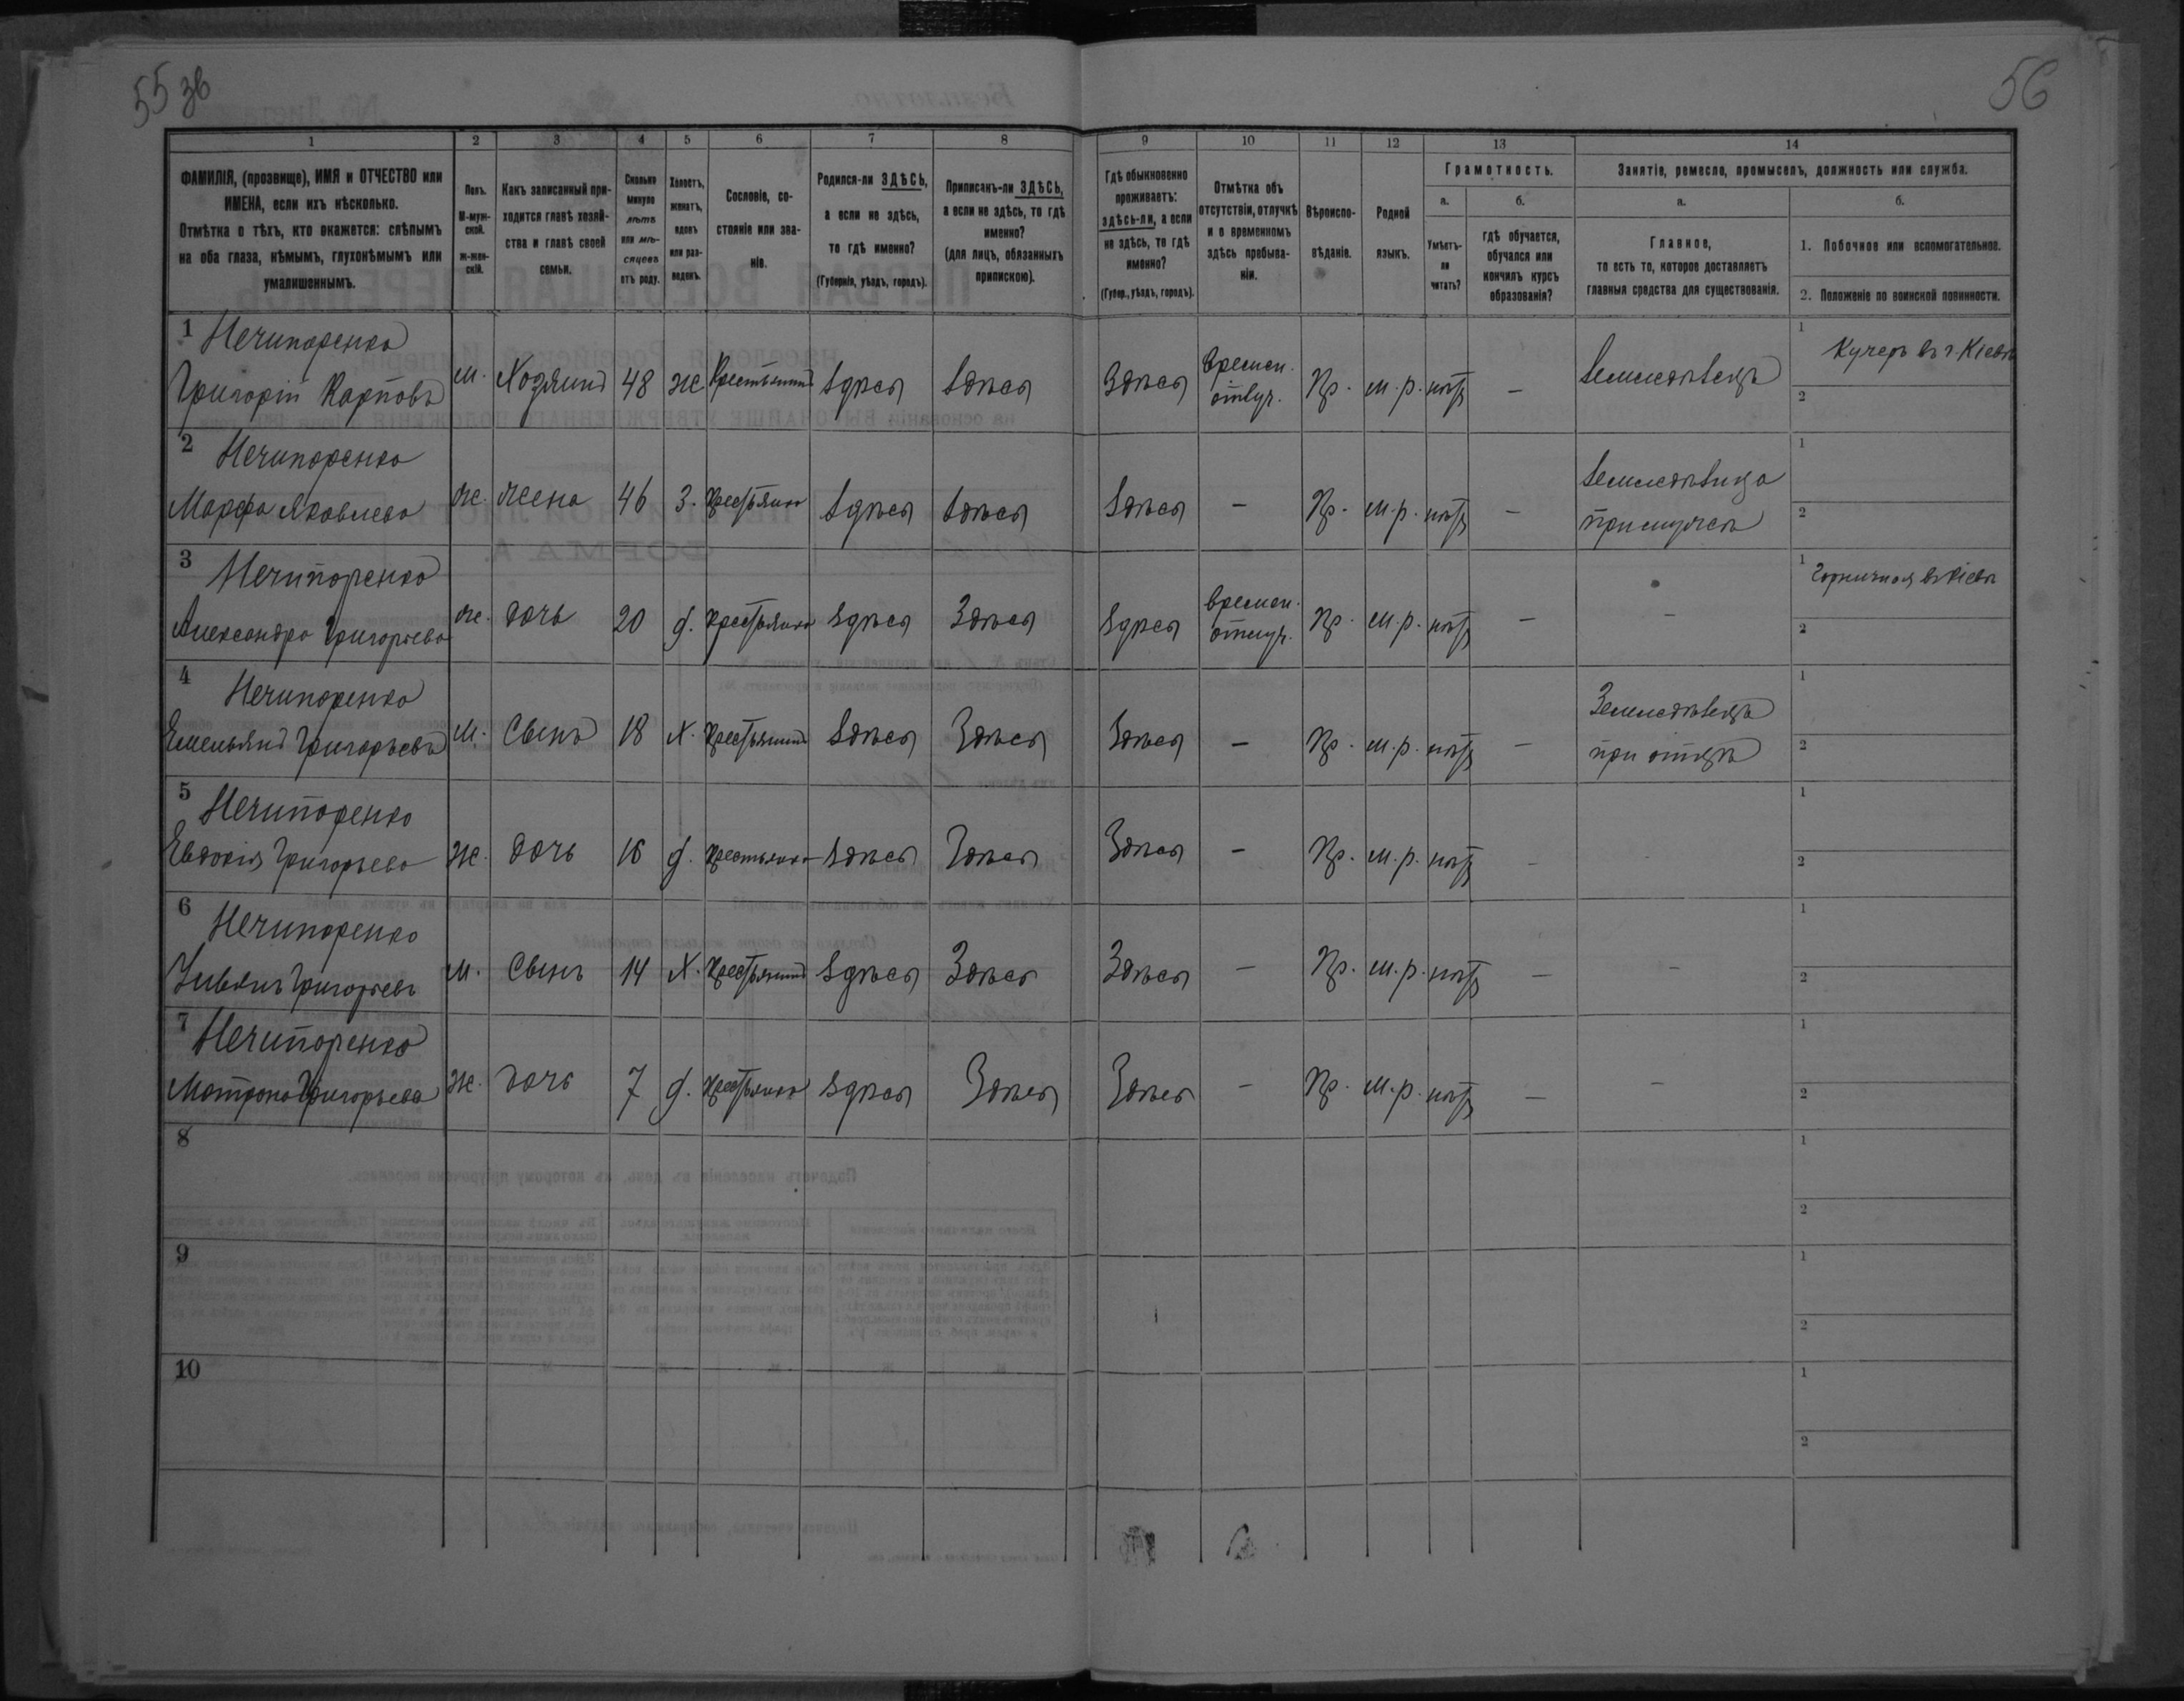 55 зв
56
1 2 3 4 5 6 7 8 9 10 11 12 13 14
ФАМИЛІЯ, (прозвище), ИМЯ и ОТЧЕСТВО или
ИМЕНА, если ихъ нѣсколько.
Отмѣтка о тѣхъ, кто окажется: слѣпымъ
на оба глаза, нѣмымъ, глухонѣмымъ или
умалишеннымъ.
Полъ.
М-муж-
ской.
ж-жен-
скій.
Какъ записанный при-
ходится главѣ хозяй-
ства и главѣ своей
семьи.
Сколько
минуло
лѣтъ
или мѣ-
сяцевъ
отъ роду.
Холостъ,
женатъ,
вдовъ
или раз-
веденъ.
Сословіе, со-
стояніе или зва-
ніе.
Родился-ли ЗДѢСЬ,
а если не здѣсь,
то гдѣ именно?
(Губернія, уѣздъ, городъ).
Приписанъ-ли ЗДѢСЬ,
а если не здѣсь, то гдѣ
именно?
(для лицъ, обязанныхъ
припискою).
Гдѣ обыкновенно
проживаетъ:
здѣсь-ли, а если
не здѣсь, то гдѣ
именно?
(Губер., уѣздъ, городъ).
Отмѣтка объ
отсутствіи, отлучкѣ
и о временномъ
здѣсь пребыва-
ніи.
Вѣроиспо-
вѣданіе.
Родной
языкъ.
Грамотность.
а.
Умѣетъ-
ли
читать?
б.
гдѣ обучается,
обучался или
кончилъ курсъ
образованія?
Занятіе, ремесло, промыселъ, должность или служба.
а.
Главное,
то есть то, которое доставляетъ
главныя средства для существованія.
б.
1. Побочное или вспомогательное.
2. Положеніе по воинской повинности.
1 Нечипоренко
Григорій Карповъ м. Хозяинъ 48 ж Крестьянинъ Здѣсь Здѣсь Здѣсь времен. отлуч. Пр. м.р. нѣтъ — Земледѣлецъ 1 Кучеръ въ г. Кіевѣ
2
2 Нечипоренко
Марфа Яковлева ж. жена 46 З. крестьянка Здѣсь Здѣсь Здѣсь — Пр. м.р. нѣтъ — Земледѣлица при мужѣ 1
2
3 Нечипоренко
Александра Григорьева ж. дочь 20 д. крестьянка Здѣсь Здѣсь Здѣсь времен. отлуч. Пр. м.р. нѣтъ — — 1 Горничная въ Кіевѣ
2
4 Нечипоренко
Емельянъ Григорьевъ м. Сынъ 18 Х. крестьянинъ Здѣсь Здѣсь Здѣсь — Пр. м.р. нѣтъ — Земледѣлецъ при отцѣ 1
2
5 Нечипоренко
Евдокія Григорьева ж. дочь 16 д. крестьянка Здѣсь Здѣсь Здѣсь — Пр. м.р. нѣтъ — 1
2
6 Нечипоренко
Григорьевъ м. Сынъ 14 Х. крестьянинъ Здѣсь Здѣсь Здѣсь — Пр. м.р. нѣтъ — — 1
2
7 Нечипоренко
Матрона Григорьева ж. дочь 7 д. крестьянка Здѣсь Здѣсь Здѣсь — Пр. м.р. нѣтъ — — 1
2
8 1
2
9 1
2
10 1
2